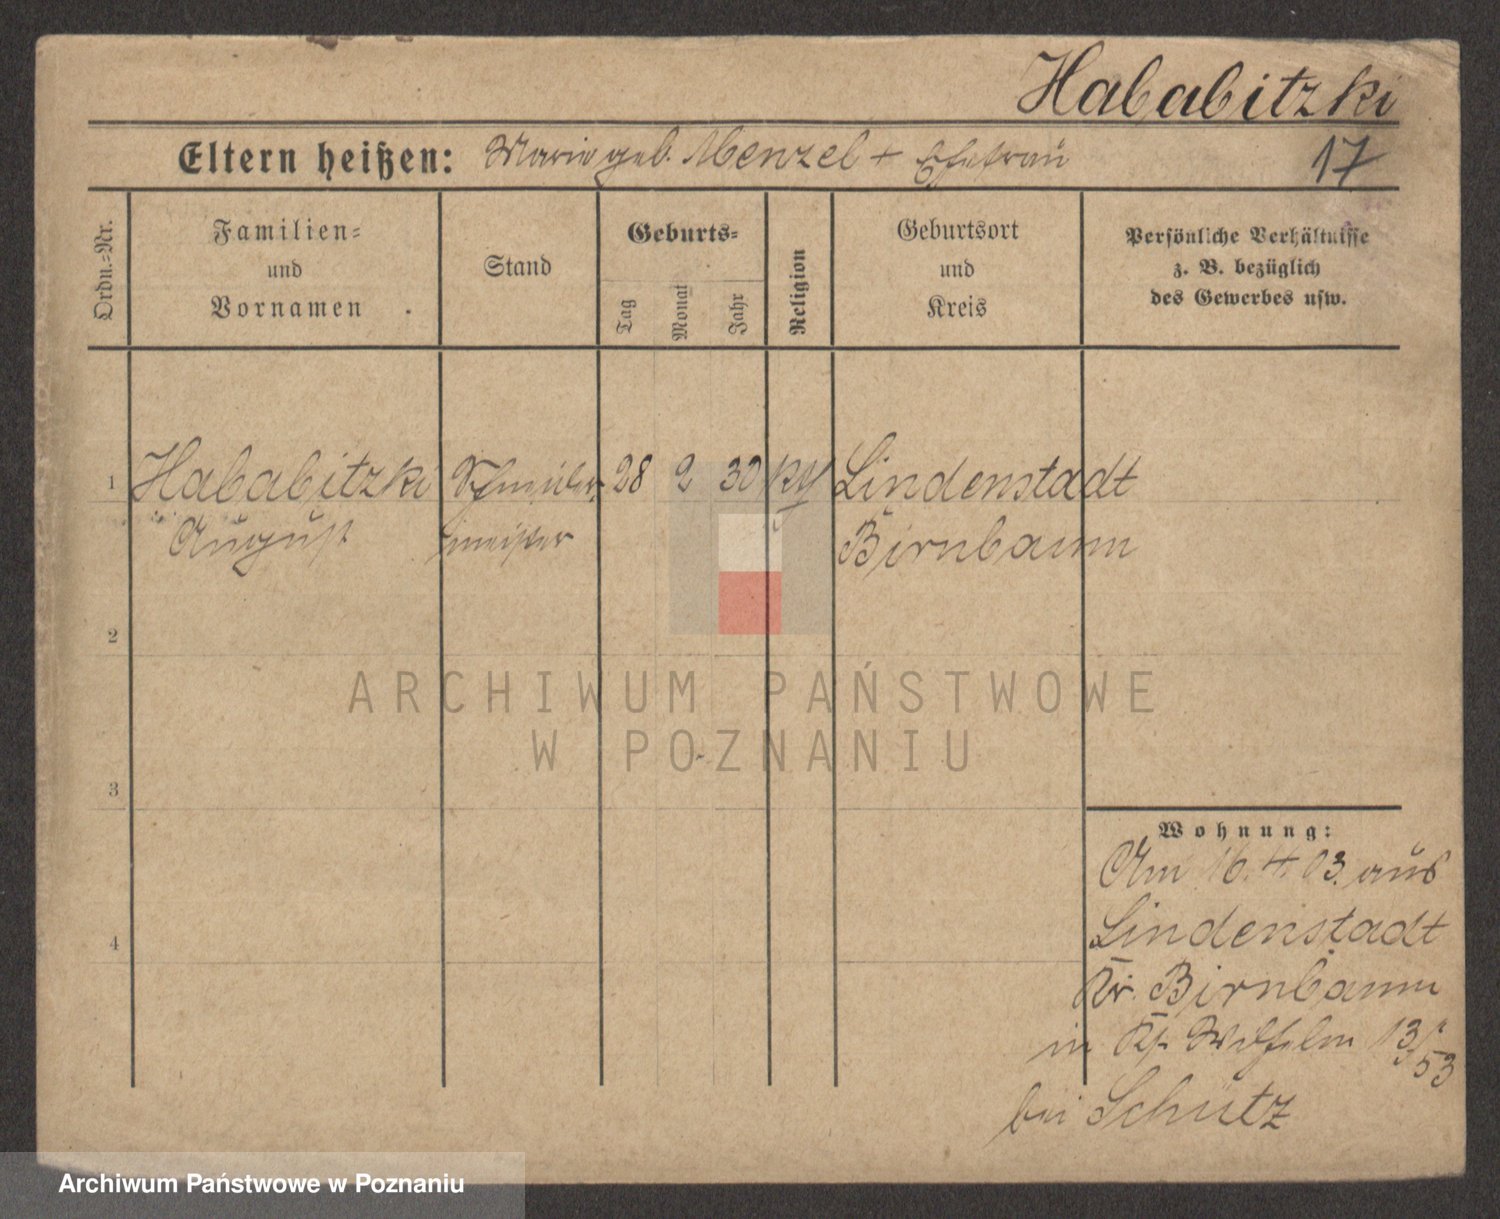 Hababitzki
Eltern heißen: Marie geb. Menzel + Ehefrau 17
Ordn.=Nr.
Familien=
und
Vornamen
Stand
Geburts=
Tag
Monat
Jahr
Religion
Geburtsort
und
Kreis
Persönliche Verhältnisse
z. B. bezüglich
des Gewerbes usw.
1 Hababitzki 28 2 30 Lindenstadt
August meister Birnbaum
2
ARCHIWUM PAŃSTWOWE
W POZNANIU
3
Wohnung:
Am 16.4.03. aus
Lindenstadt
4
Kr. Birnbaum
in 13/53
bei Schütz
Archiwum Państwowe w Poznaniu